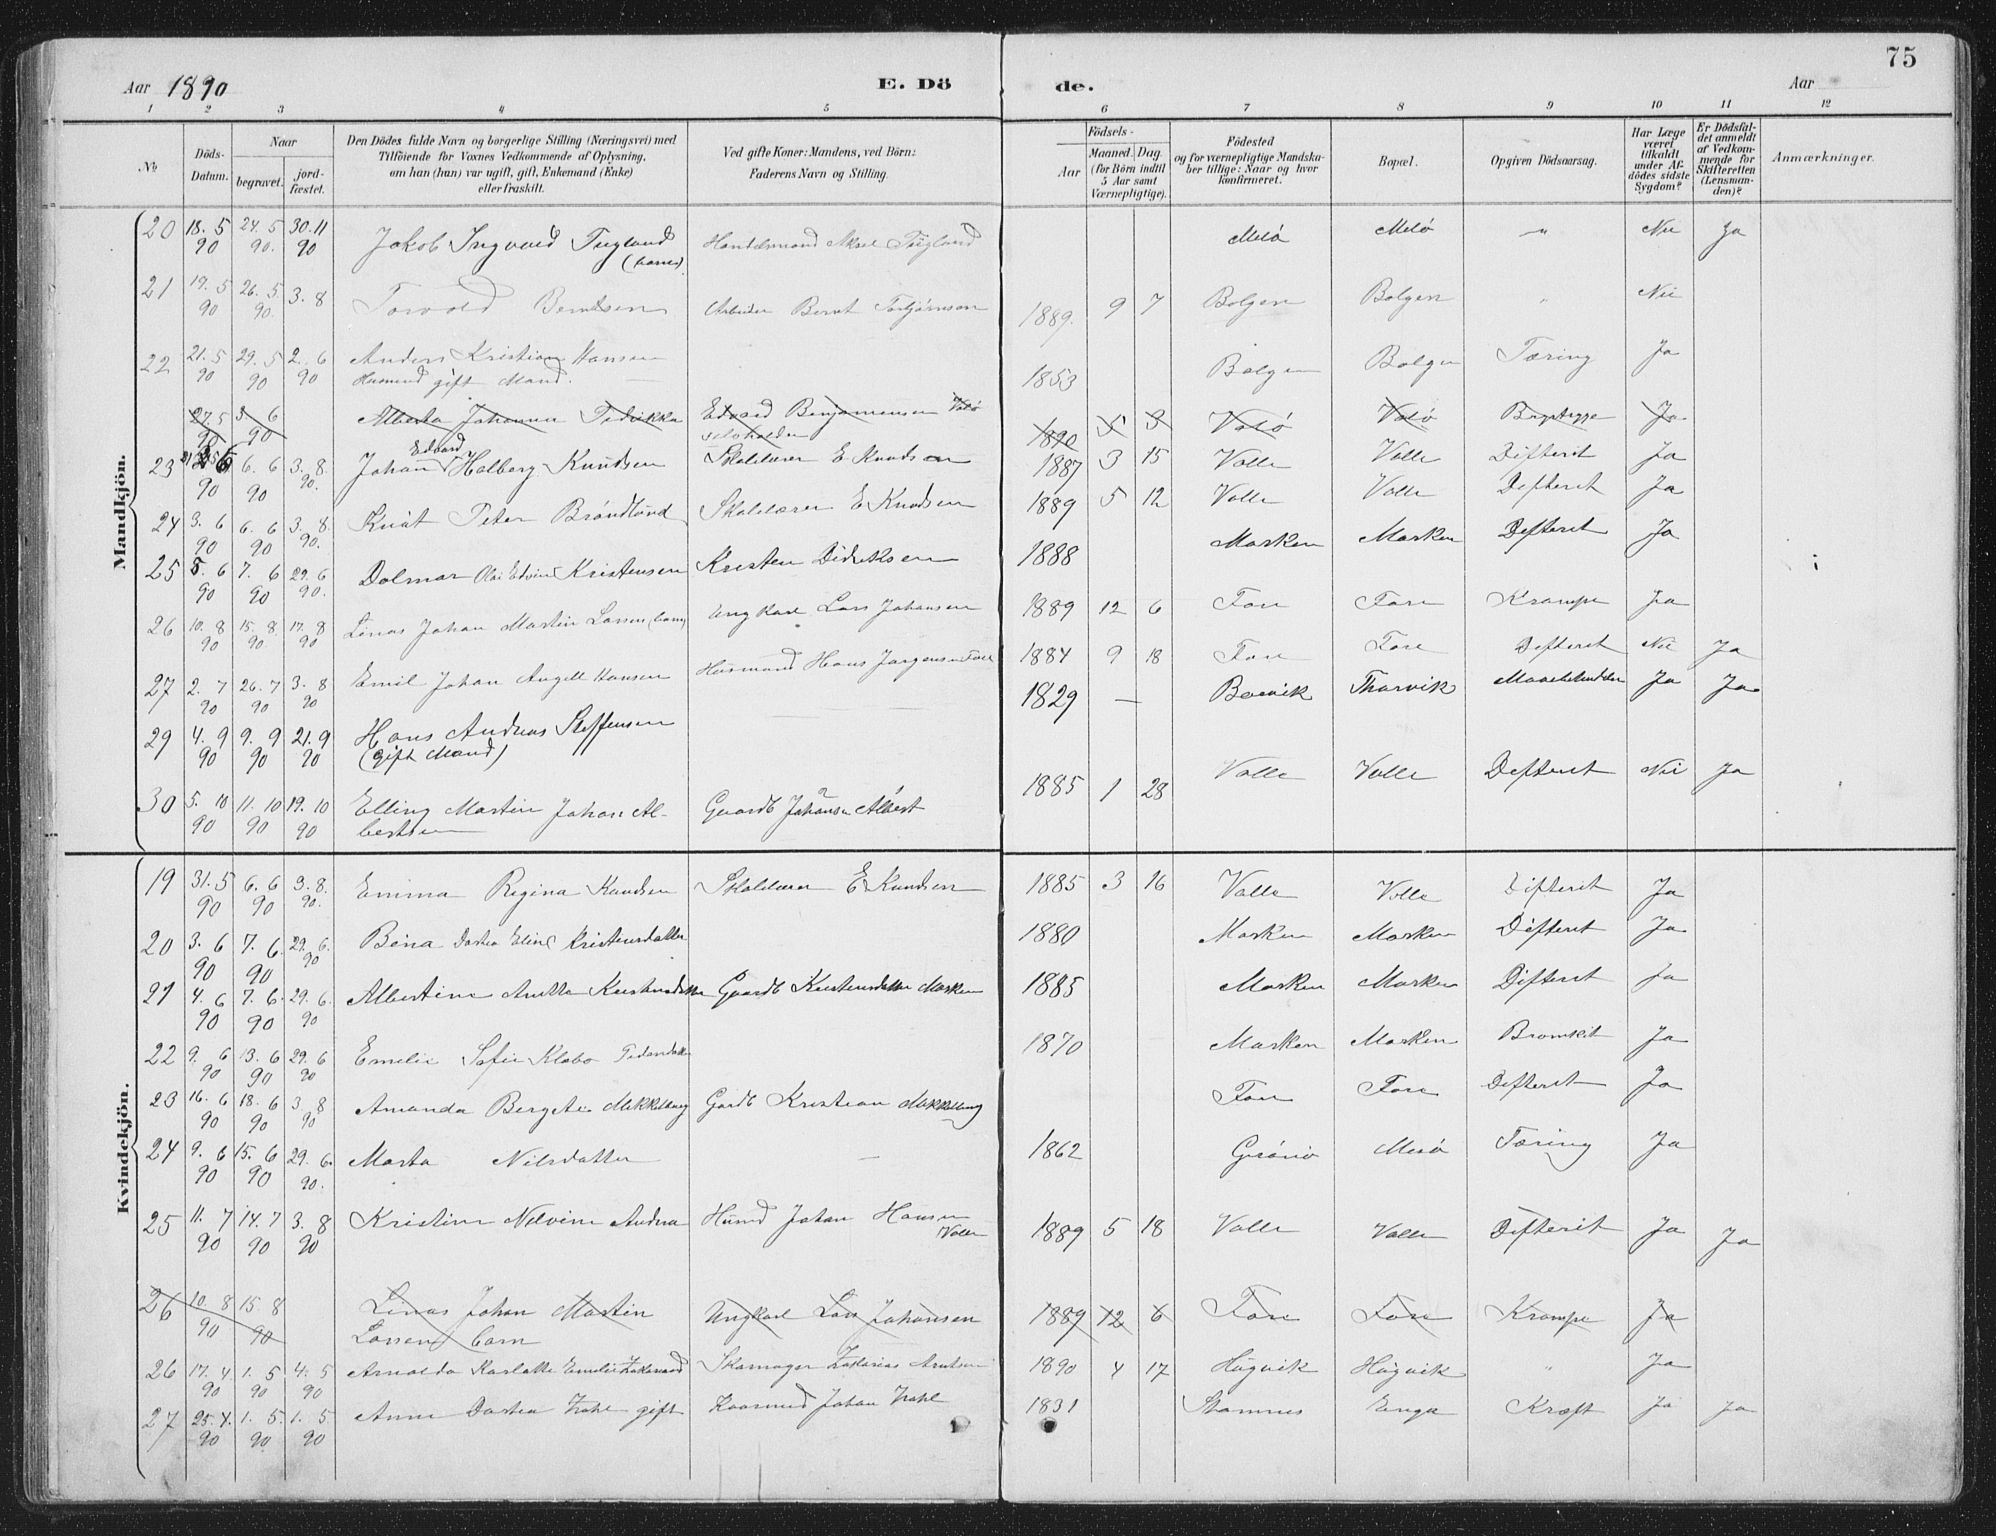 75
Aar 1890 E. Dö de. Aar
1 2 3 4 5 6 7 8 9 10 11 12
№ Döds-Datum. Naar begravet. jordfæstet. Den Dödes fulde Navn og borgerlige Stilling (Næringsvei) med Tilföiende for Voxnes Vedkommende af Oplysning, om han (hun) var ugift, gift, Enkemand (Enke) eller fraskilt. Ved gifte Koner: Mandens, ved Börn: Faderens Navn og Stilling. Födsels- Aar Maaned. Dag (for Börn indtil 5 Aar samt Værnepligtige). Födested og for værnepligtige Mandskaber tillige: Naar og hvor konfirmeret. Bopæl. Opgiven Dödsaarsag. Har Læge været tilkaldt under Afdödes sidste Sygdom? Er Dödsfaldet anmeldt af Vedkommende for Skifteretten (Lensmanden)? Anmærkninger.
Mandkjön.
20 18.5 90 24.5 90. 30.11 90 Jakob Ingvald Fugland (barn) Aksel Fugland Melö Melö " Nei Ja
21 19.5 90 26.5 90. 3.8 Torvald Berntsen Arbeider Bernt Torbjörnsen 1889. 9 7 Bolgen Bolgen " Nei
22 21.5 90 29.5 90 2.6 90 Anders Kristian Hansen Husmd gift Mand. — 1853 Bolgen Bolgen Tæring Ja
27.5 90 3 6 90 Alberta Johanna Fredrikka Edvard Benjaminsen Valö 1890 5 3 Valö Valö Ja
23 31.5 90 6.6 90 3.8. 90. Johan Edvard Holberg Knudsen Skolelærer E Knudsen 1887 3 15 Valle Valle Difterit Ja
24 3.6 90 6.6 90 3.8. 90. Knut Peter Bröndlund Skolelærer E Knudsen 1889 5 12 Valle Valle Defterit Ja
25 5.6 90 7.6 90 29.6 90. Dolmar Olai Edvin Kristensen Kristen Didriksen 1888 Marken Marken Defterit Ja
26 10.8 90 15.8 90. 17.8 90 Linas Johan Martin Larsen (barn) Ungkarl Lars Johansen 1889 12 6 Fore Fore Krampe Ja
27 2.7 90 26.7 90 3.8 90 Emil Johan Angell Hansen Husmand Hans Jørgensen Fore 1884 9 18 Fore Fore Defterit Nei Ja
29 4.9 90 9.9 90 21.9 90 Hans Andreas Steffensen (gift Mand) 1829 — Thorvik Ja Ja
30 5.10 90 11.10 90 19.10 90 Elling Martin Johan Albertsen Gaardb Johansen Albert 1885 1 28 Valle Valle Defterit Nei Ja
Kvindekjön.
19 31.5 90 6.6 90 3.8. 90. Emma Regina Knudsen Skolelærer E Knudsen 1885 3 16 Valle Valle Difterit Ja
20 3.6 90 7.6. 90 29.6. 90 Bina Dortea Eline Kristensdatter 1880 Marken Marken Difterit Ja
21 4.6 90 7.6. 90 29.6. 90 Albertine Anikka Kristensdatter Gaardb Kristensdatter Marken 1885 Marken Marken Difterit Ja
22 9.6 90 13.6 90 29.6 90 Emelie Sofie Klabo 1870 Marken Marken Ja
23 16.6 90 18.6 90 3 8 90 Amanda Bergete Mikkelborg Gardb Kristian Mikkelborg Fore Fore Defterit Ja
24 9.6 90 15.6 90 29.6. 90. Marta Nilsdatter — 1862 Grönö Mesö Tæring Ja
25 11.7 90 14.7 90 3.8 90 Kristine Nelvine Andrea Husmd Johan Hansen Valle 1889 5 18 Valle Valle Difterit Ja Ja
26 10.8 90 15.8 90 Linas Johan Martin Larsen barn Ungkarl Lars Johansen 1889 12 6 Fore Fore Krampe Ja
26 17.4 90 1.5 90 4.5 90 Arnolda Karlotte Emelie Skomager Zakarias Arntsen 1890 4 17 Hugvik Hugvik " Ja
27 25.4. 90 1.5. 90. 1.5 90 Anne Dortea Zahl gift Johan Zahl 1831 Stamnes Enga Kræft Ja Ja